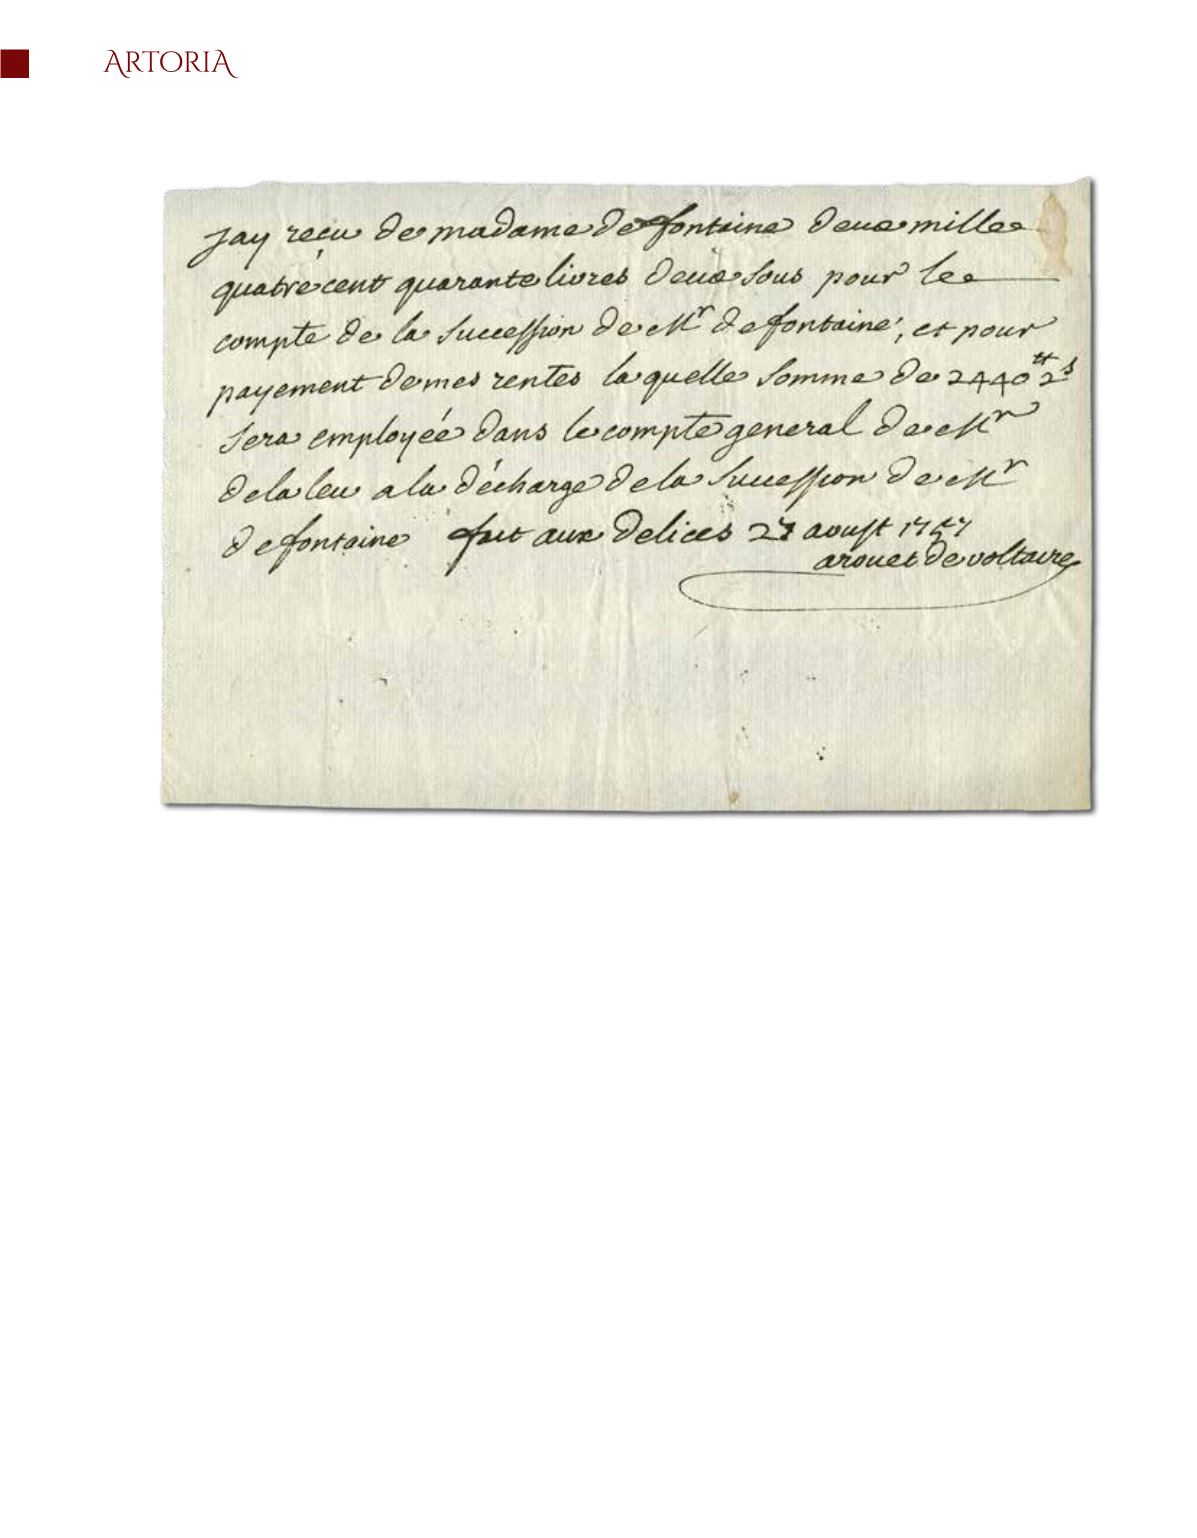 ARTORIA
jay reçu de madame de fontaine deux mille
quatre cent quarante livres deux sous pour le
compte de la succession de Mr de fontaine, et pour
payement de mes rentes la quelle somme de 2440 tt 2 s
sera employée dans le compte general de Mr
de la leu a la décharge de la succession de Mr
de fontaine fait aux delices 27 aoust 1757
arouet de voltaire